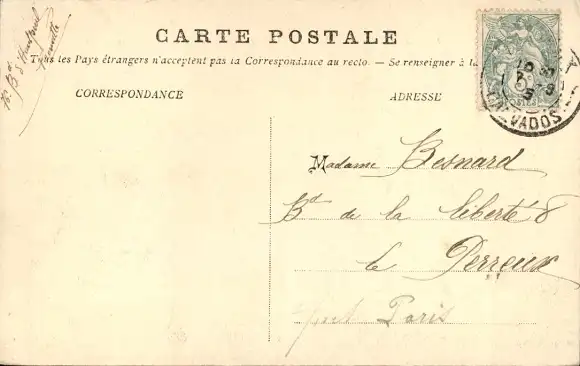 CARTE POSTALE
Tous les Pays étrangers n'acceptent pas la Correspondance au recto. — Se renseigner à la
CORRESPONDANCE
ADRESSE
CALVADOS
Madame Besnard
Bd de la liberté 8
le Perreux
Paris